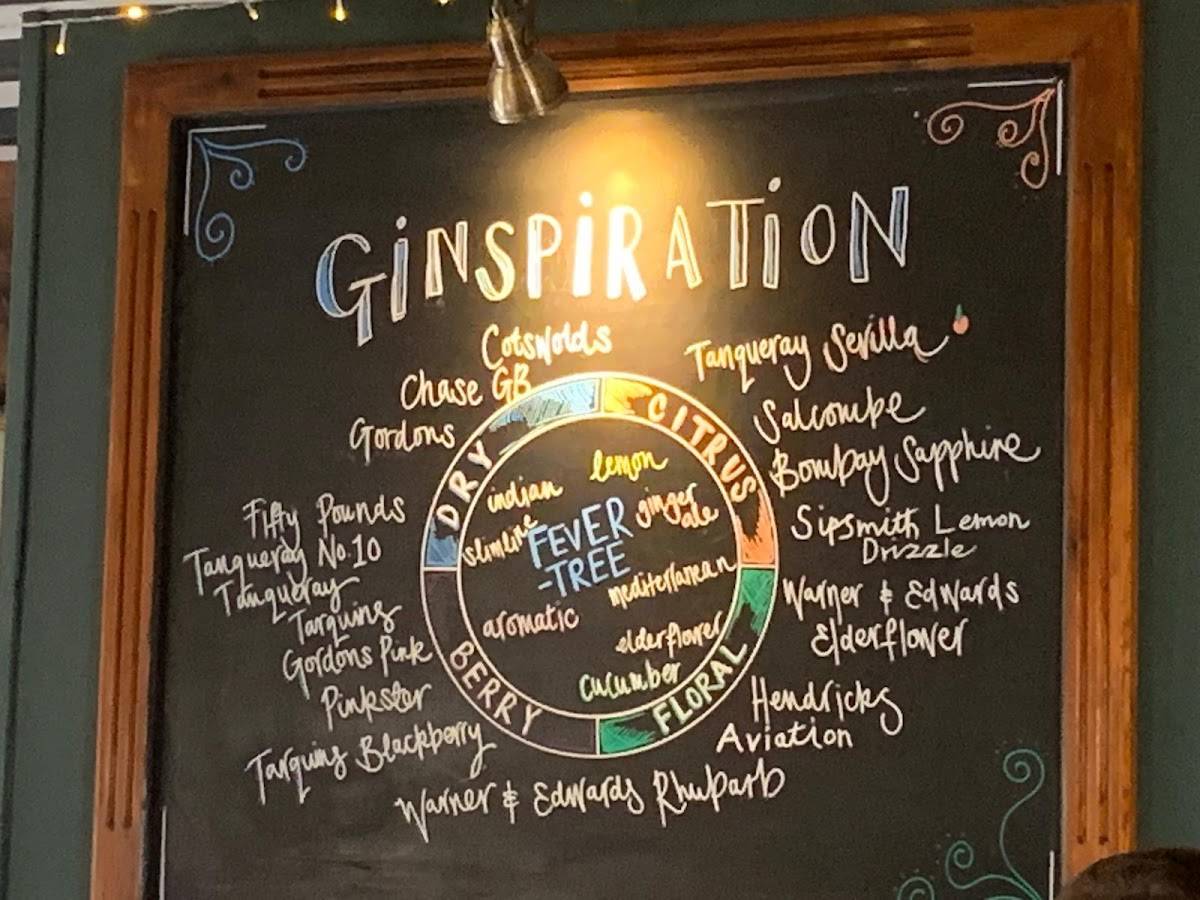 GiNSPiRATiON
Cotswolds
Chase GB
Gordons
Tanqueray Sevilla
Salcombe
Bombay Sapphire
Fifty Pounds
Tanqueray No.10
Tanqueray
Tarquins
Gordons Pink
Pinkster
Tarquins Blackberry
Sipsmith Lemon
Drizzle
Warner & Edwards
Elderflower
Hendricks
Aviation
Warner & Edwards Rhubarb
DRY
CITRUS
BERRY
FLORAL
lemon
indian
ginger
ale
slimline
FEVER
-TREE
mediterranean
aromatic
elderflower
cucumber